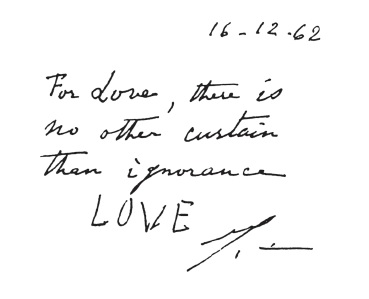 16-12-62
For Love, there is
no other custain
than ignorance
LOVE